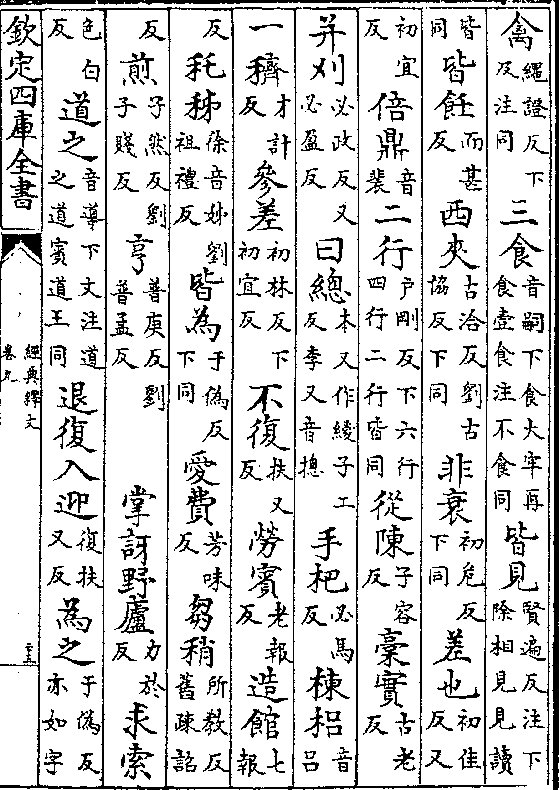 禽繩證反下及注同三食音嗣下食大牢再食壹食注不食同皆見賢遍反注下除相見見讀
皆同皆飪而甚反西夾古洽反劉古協反下同非衰初危反下同差也初佳反又
初宜反倍鼎音裴二行户剛反下六行四行二行皆同從陳子容反稾實古老反
并刈必政反又必盈反曰總本又作緵子工反李又音摠手杷必馬反棟梠音吕
一穧才計反參差初林反下初宜反不復扶又反勞賓老報反造館七報
反秅秭徐音姊劉祖禮反皆為于偽反下同愛費芳味反芻稍所教反舊疎詔
反煎子然反劉子賤反亨普庚反劉普孟反掌訝野廬力於反求索
色白反道之音導下文注道之道賓道王同退復入迎復扶又反為之于偽反亦如字
欽定四庫全書
經典釋文
卷九